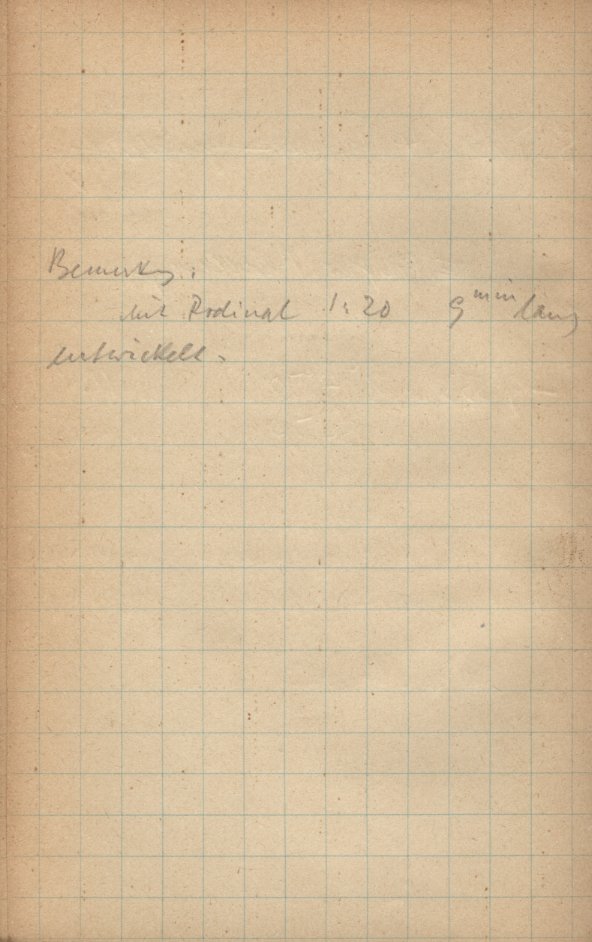 Bemerkg.:
mit Rodinal 1:20 9 min lang
entwickelt.